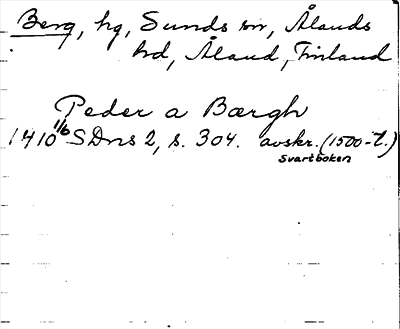 Berg, hg, Sunds sn, Ålands
hd, Åland, Finland
Peder a Bærgh
1410 1/6 SDns 2, s. 304. avskr. (1500-t.)
Svartboken